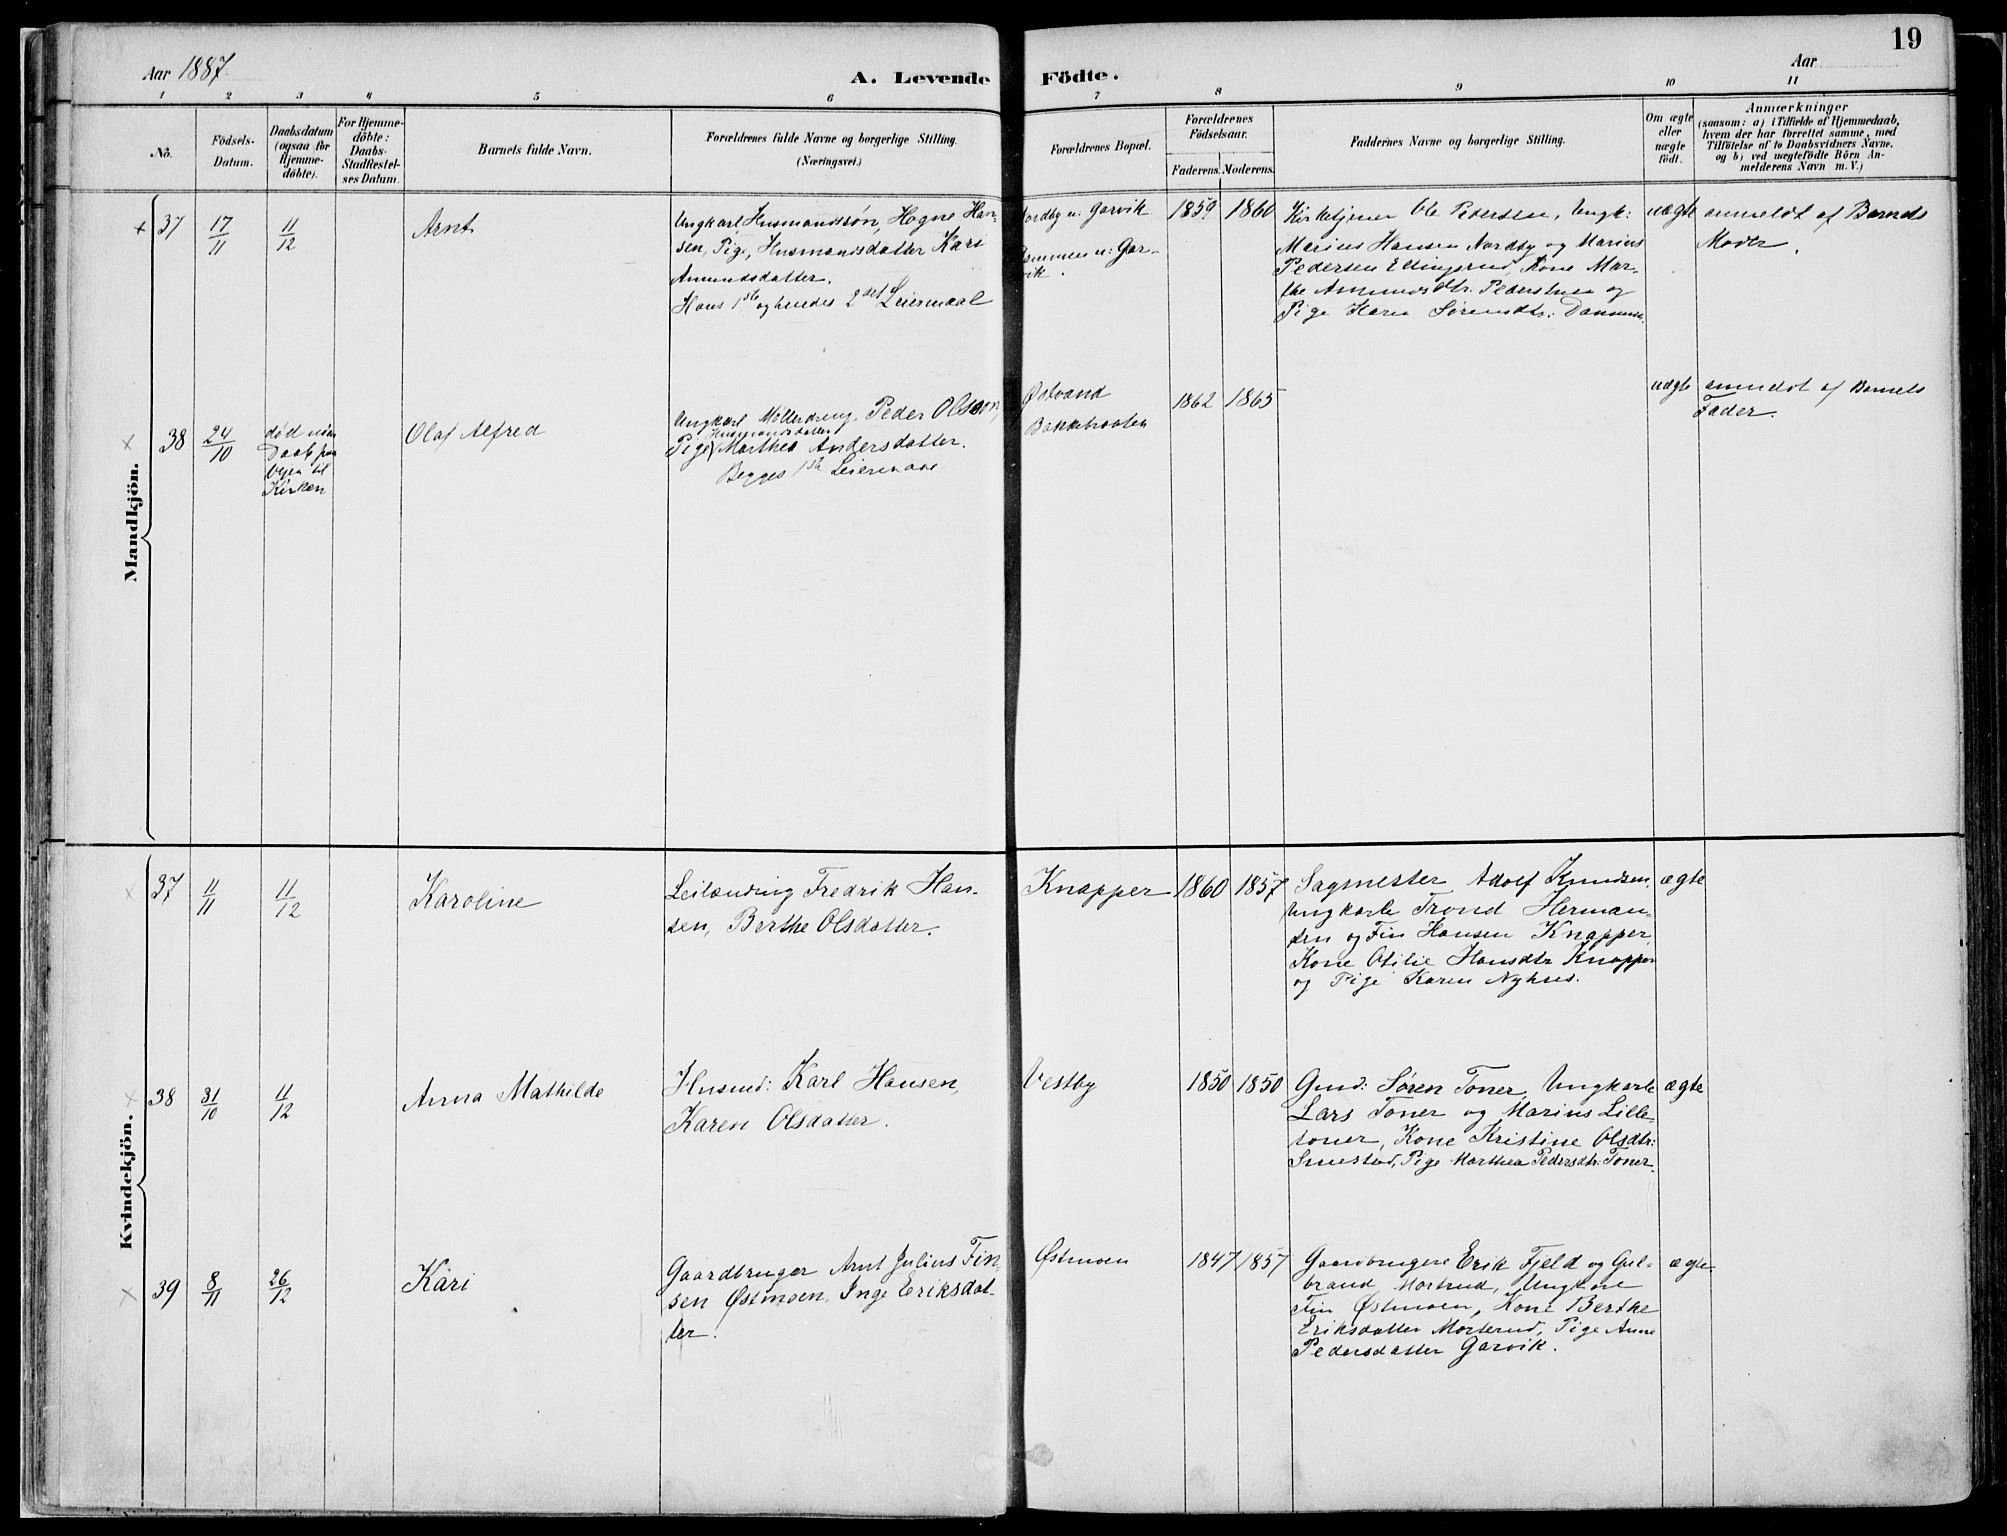 19
Aar 1887.
A. Levende
Födte.
Aar
1
2
3
4
5
6
7
8
9
10
11
No.
Födsels-
Datum.
Daabsdatum
(ogsaa för
Hjemme-
döbte).
For Hjemme-
döbte:
Daabs-
Stadfestel-
ses Datum.
Barnets fulde Navn.
Forældrenes fulde Navne og borgerlige Stilling.
(Næringsvei.)
Forældrenes Bopæl.
Forældrenes
Födselsaar.
Faderens.
Moderens.
Faddernes Navne og borgerlige Stilling.
Om ægte
eller
uægte
födt.
Anmærkninger
(saasom: a) i Tilfælde af Hjemmedaab,
hvem der har forrettet samme, med
Tilföielse af to Daabsvidners Navne,
og b) ved uægtefödte Börn An-
melderens Navn m. V.)
Mandkjön.
+ 37
17/11
11/12
Arnt
Ungkarl Husmandssøn, Hogne Han-
sen, Pige, Husmandsdatter Kari
Amundsdatter.
Hans 1ste og hendes 2det Leiermaal
Nordby u: Garvik
u: Gar-
vik.
1859
1860
Kirketjener Ole Pedersen, Ungk:
Marius Hansen Nordby og Marius
Pedersen Ellingsrud, Kone Mar-
the Amundsdtr. Pederstuen og
Pige Karen Sørensdtr:
uægte
anmeldt af Barnets
Moder.
x 38
24/10
død uden
Daab paa
Vejen til
Kirken
Olaf Alfred
Ungkarl Mølledreng, Peder Olsen,
Husmandsdatter
Pige Marthea Andersdatter.
Begges 1ste Leiermaal
Østvand
Bakkehouten
1862
1865
uægte
anmeldt af Barnets
Fader.
Kvindekjön.
x 37
11/11
11/12
Karoline
Leilænding Fredrik Han-
sen, Berthe Olsdatter.
Knapper
1860
1857
Sagmester Adolf Knudsen,
Ungkarle Trond Herman-
sen og Fin Hansen Knapper,
Kone Otilie Hansdtr Knapper
og Pige Karen Nyhus.
ægte
x 38
31/10
11/12
Anna Mathilde
Husmd: Karl Hansen,
Karen Olsdatter.
Vestby
1850
1850
Gmd: Søren Toner, Ungkarle
Lars Toner og Marius Lille-
toner, Kone Kristine Olsdtr:
Smestad, Pige Marthea Pedersdtr: Toner.
ægte
x 39
8/11
26/12
Kari
Gaardbruger Arnt Julius Fin-
sen Østmoen, Inge Eriksdat-
ter.
Østmoen
1847
1857
Gaardbrugere Erik Fjeld og Gul-
brand Morterud, Ungkarl
Fin Østmoen, Kone Berthe
Eriksdatter Morterud, Pige Anne
Pedersdatter Garvik.
ægte